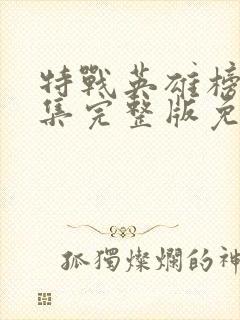 特戰英雄榜
集完整版免
孤獨燦爛的神